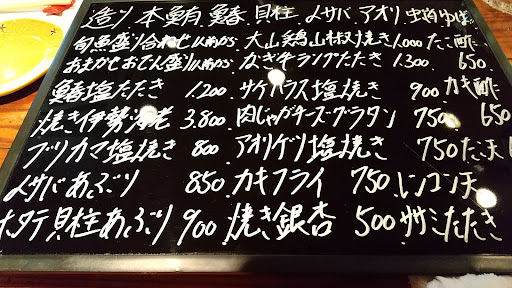 造り 本鮪 鰆 貝柱 〆サバ アオリ
旬魚盛り合わせ 大山鶏山椒焼き 1,000 たこ酢
おまかせおでん盛り たたき 1.300 650
鰆塩たたき 1.200 サケハラス塩焼き 900 カキ酢
焼き伊勢海老 3.800 肉じゃがチーズグラタン 750 650
ブリカマ塩焼き 800 アオリゲソ塩焼き 750
〆サバあぶり 850 カキフライ 750 レンコン天
ホタテ貝柱あぶり 900 焼き銀杏 500 ササミたたき